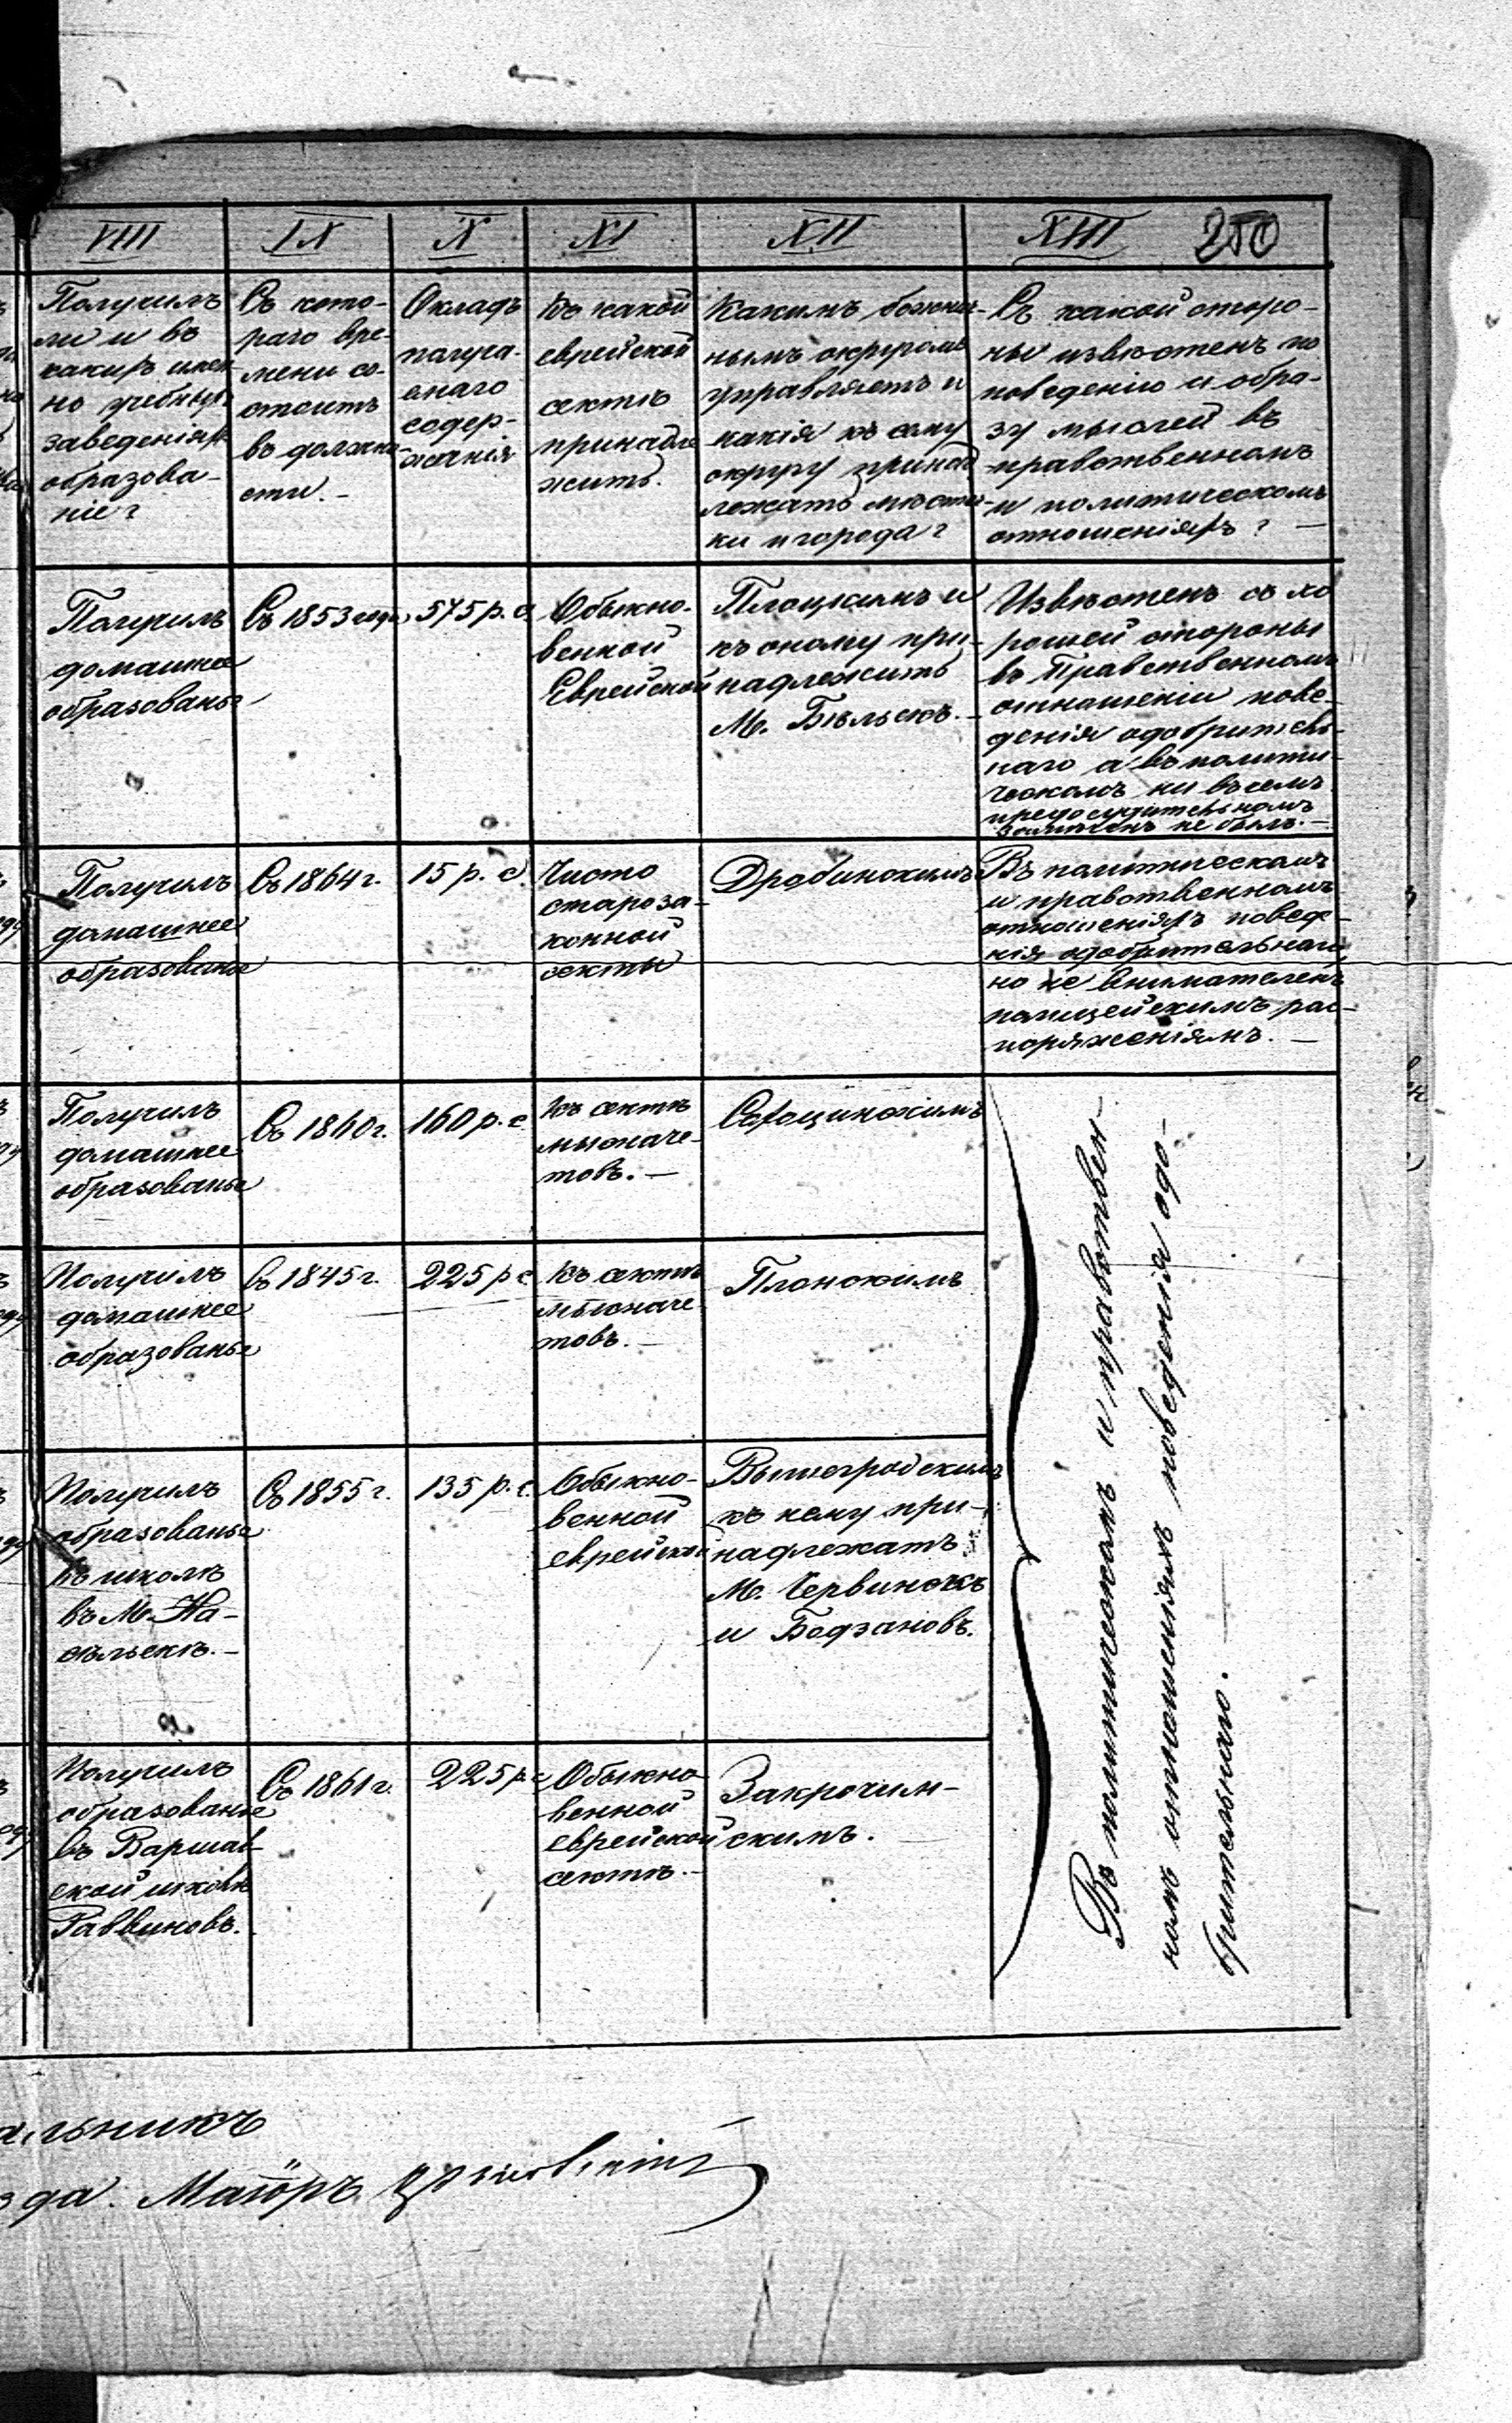 VIII
IX
X
XI
XII
XIII
250
Получилъ
ли и въ
какихъ имен
но учебныхъ
заведеніяхъ
образова-
ніе?
Съ кото-
раго вре-
мени со-
стоитъ
въ должно-
сти. -
Окладъ
получа-
емаго
содер-
жанія
Къ какой
еврейской
сектѣ
принадле
житъ.
Какимъ божнич-
нымъ округомъ
управляетъ и
какія къ сему
округу принад
лежатъ мѣстеч-
ки и города?
Съ какой сторо-
ны извѣстенъ по
поведенію и обра-
зу мыслей въ
нравственномъ
и политическомъ
отношеніяхъ? —
Получилъ
домашнее
образованье
Съ 1853 года
575 р. с.
Обыкно-
венной
Еврейской
Плоцкимъ и
къ оному при-
надлежитъ
М. Бѣльскъ. -
Извѣстенъ съ хо
рошей стороны
въ нравственномъ
отношеніи пове-
денія одобритель-
наго а въ полити-
ческомъ ни въ чемъ
предосудительномъ
замѣченъ не былъ. -
Получилъ
домашнее
образованье
Съ 1864 г.
15 р. с.
Чисто
староза-
конной
секты
Дробинскимъ
Въ политическомъ
и нравственномъ
отношеніяхъ поведе-
нія одобрительнаго,
но не внимателенъ
полицейскимъ рас-
поряженіямъ. —
Получилъ
домашнее
образованье
Съ 1860 г.
160 р. с.
Къ сектѣ
мыснаге-
товъ. —
Сохоцинскимъ
Получилъ
домашнее
образованье
Съ 1845 г.
225 р с
Къ сектѣ
мыснаге
товъ. —
Плонскимъ
Получилъ
образованье
въ школѣ
въ М. На-
сѣльскѣ. -
Съ 1855 г.
135 р. с.
Обыкно-
венной
еврейской
Вышегродскимъ
къ нему при-
надлежатъ
М. Червинскъ
и Бодзановъ.
Получилъ
образованье
въ Варшав-
ской школѣ
Раввиновъ.
Съ 1861 г.
225 р с
Обыкно
венной
еврейской
сектѣ. -
Закрочим-
скимъ.
Въ политическомъ и нравствен-
номъ отношеніяхъ поведенія одо-
брительнаго.
альникъ
зда. Маіоръ